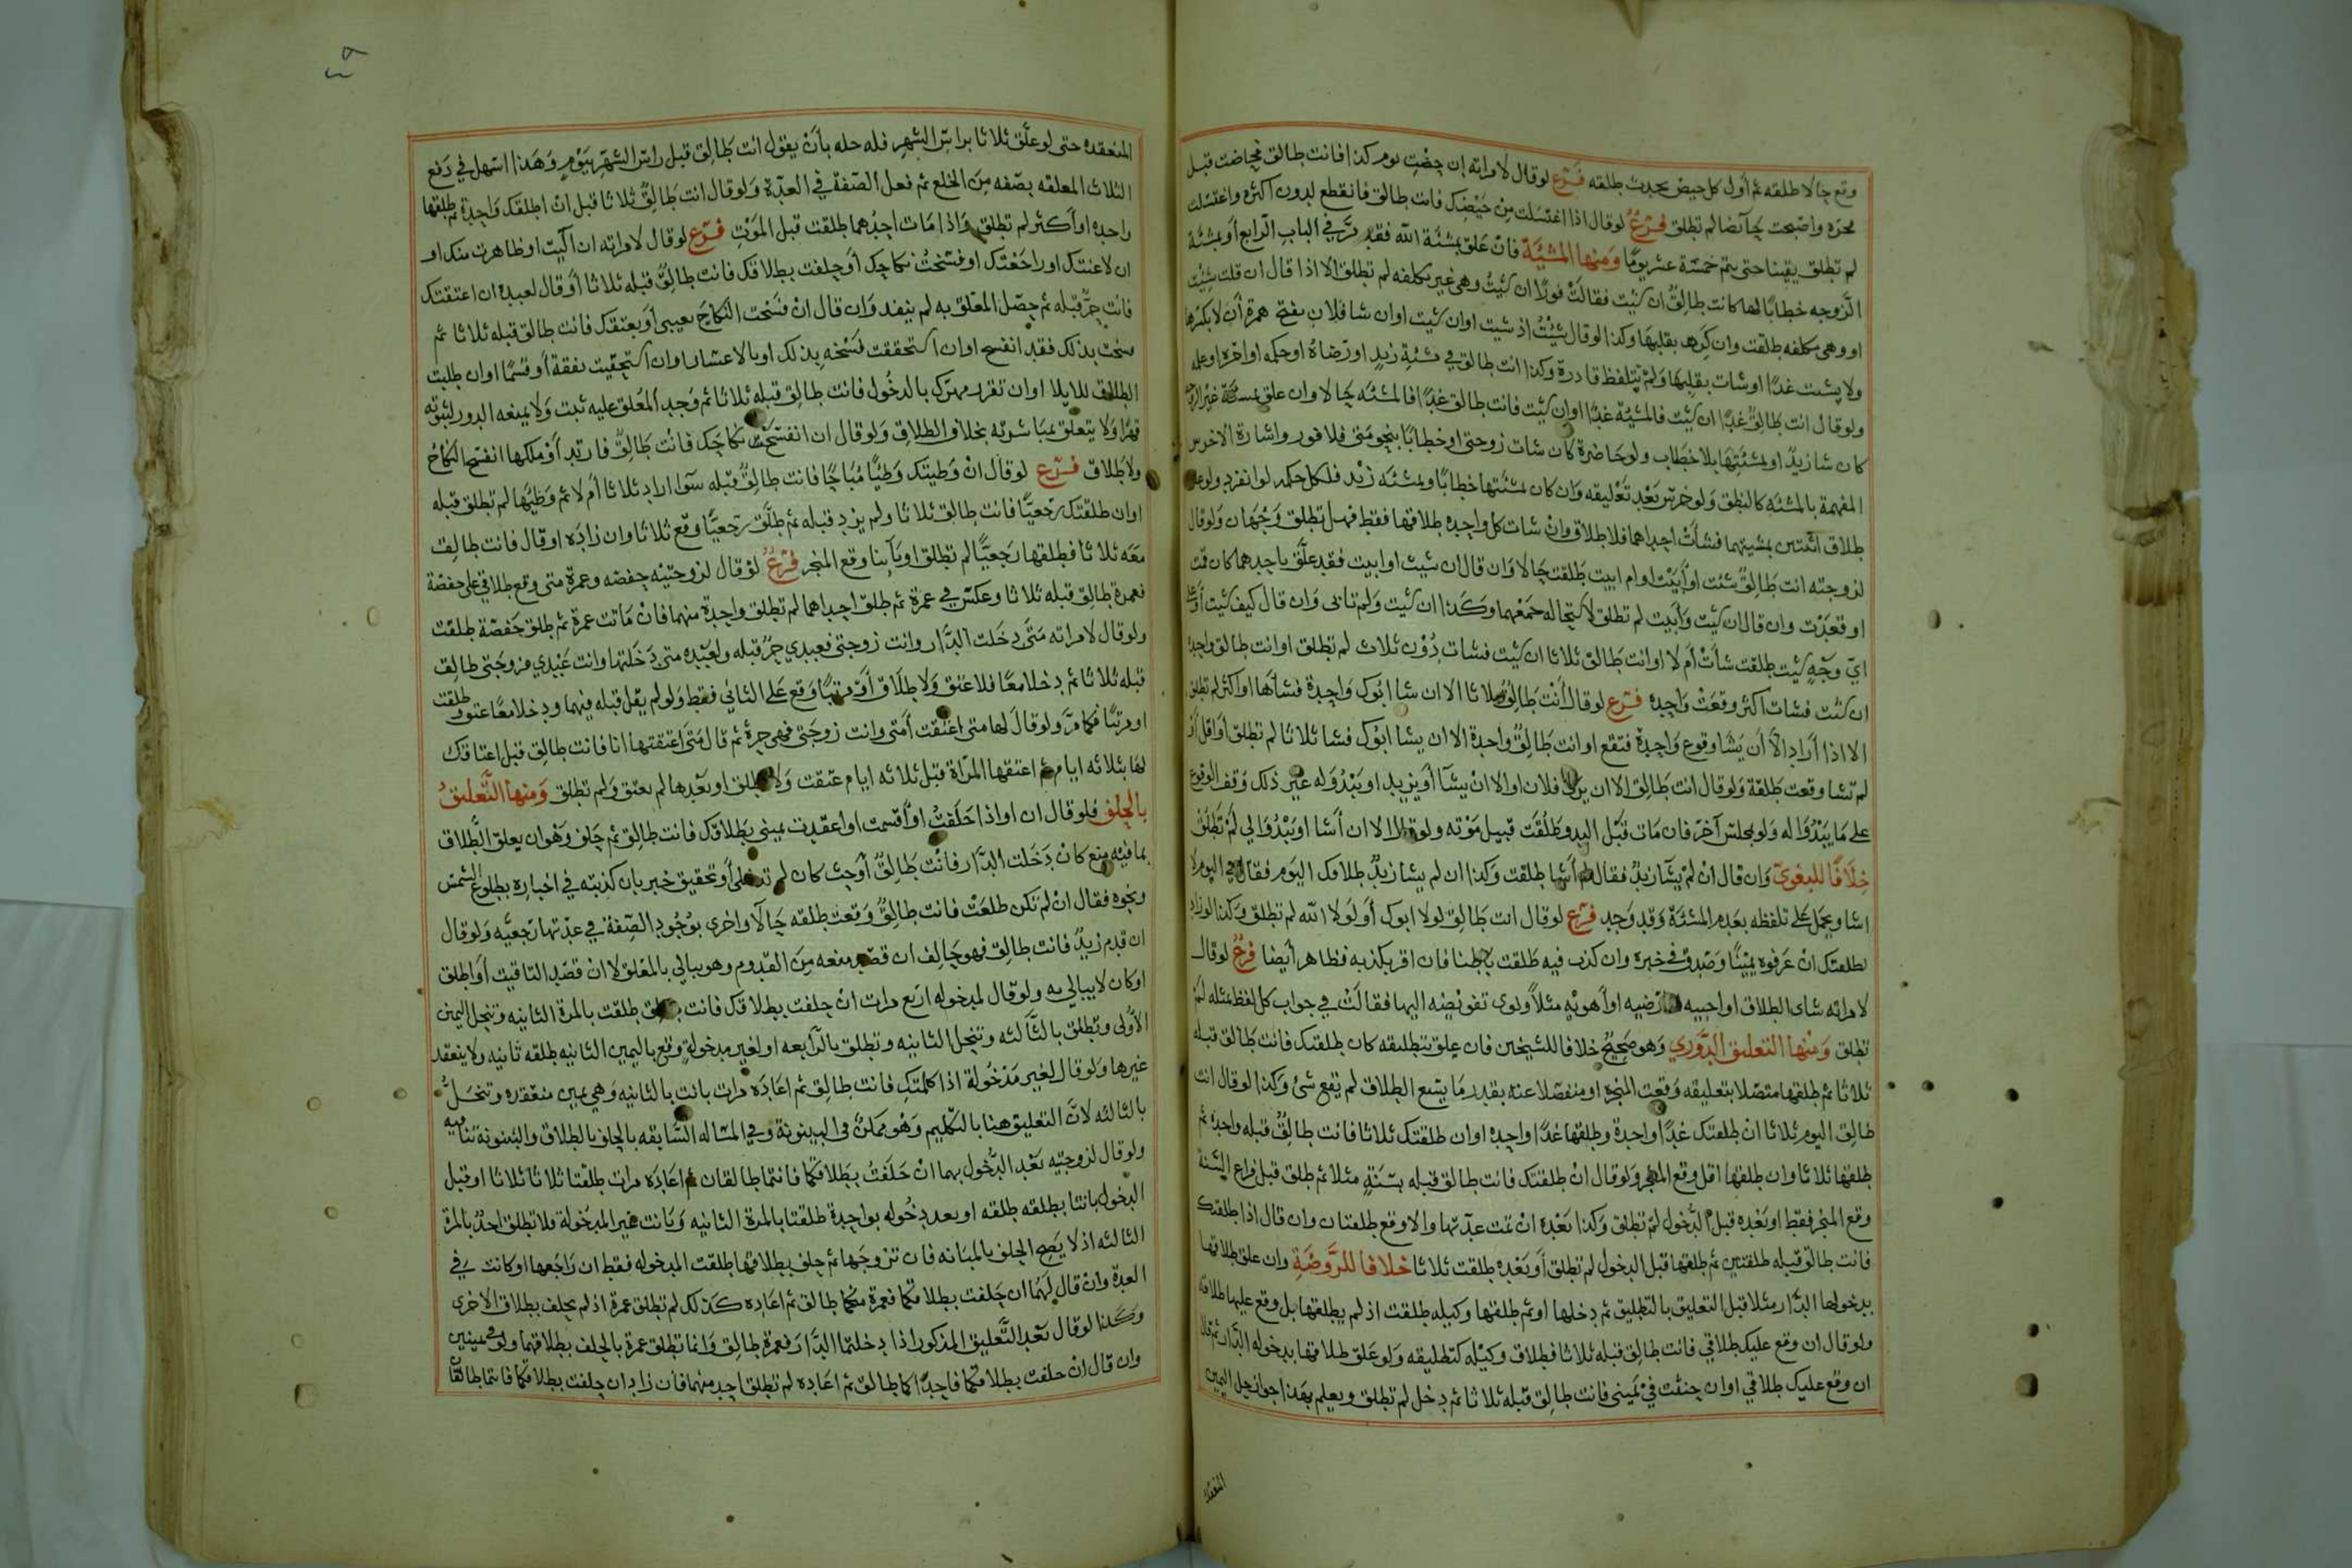 وقع حالا طلقه ثم أول كل حيض يحدث طلقه فرع لو قال لامراته إن حضت يوم كذا فانت طالق فحاضت قبل
فجره واصبحت حائضا لم تطلق فرع لو قال اذا اغتسلت من حيضك فانت طالق فانقطع لدون اكثره واغتسلت
لم تطلق يقينا حتى يتم خمسة عشر يوما ومنها المشيئة فان علق بمشئة الله فقد مر في الباب الرابع أو بمشئة
الزوجه خطابا لها كانت طالق ان شئت فقالت فورا ان شئت وهي غير مكلفه لم تطلق الا اذا قال ان قلت شئت
او وهي مكلفه طلقت وان كره بقلبها وكذا لو قال شئت اذ شيت اوان شيت اوان شا فلان بفتح همزة أن لا بكسرها
ولا يشت غدا او شات بقلبها ولم يتلفظ قادرة وكذا انت طالق في مشئة زيد او رضاه او حكمه او امره او علمه
ولو قال انت طالق غدا ان شئت فالمشئة غدا او ان شئت فانت طالق غدا فالمشئه حالا وان علق بمشئة غير الزوجه
كان شا زيد او بمشئتها بلا خطاب ولو حاضرة كان شات زوجتى او خطابا بنحو متى فلا فور واشارة الاخرس
المفهمة بالمشئه كالنطق ولو خرس بعد تعليقه وان كان بمشئتها خطابا وبمشئه زيد فلكل حكمه لو انفرد ولو علق
طلاق اثنتين بمشيتهما فشأت احداهما فلا طلاق وان شات كل واحده طلاقها فقط فهل تطلق وجهان ولو قال
لزوجته انت طالق شئت او أبيت او ام ابيت طلقت حالا وان قال ان شيت او ابيت فقد علق باحدهما كان قمت
او قعدت وان قال ان شيت وأبيت لم تطلق لاستحاله جمعهما وكذا ان شيت ولم تابى وان قال كيف شيت أو على
اي وجه شيت طلقت شأت أم لا او انت طالق ثلاثا ان شيت فشات دون ثلاث لم تطلق او انت طالق واحدة
ان شئت فشات اكثر وقعت واحده فرع لو قال أنت طالق ثلاثا الا ان شا ابوك واحدة فشاها او اكثر لم تطلق
الا اذا أراد الا أن يشا وقوع واحدة فتقع او انت طالق واحدة الا ان يشا ابوك فشا ثلاثا لم تطلق او اقل او
لم تشا وقعت طلقة ولو قال انت طالق الا ان يرى فلان او الا ان يشآ أو يريد او يبدو له غير ذلك وقف الوقوع
على ما يبدو له ولو بمجلس آخر فان مات قبل البدو طلقت قبيل موته ولو قال الا ان أشا او يبدو الي لم تطلق
خلافا للبغوي وان قال ان لم يشا زيد فقال لم أشا طلقت وكذا ان لم يشا زيد طلاقك اليوم فقال في اليوم لا
اشا ويحمل على تلفظه بعدم المشئة وقد وجد فرع لو قال انت طالق لولا ابوك أو لولا الله لم تطلق وكذا لو زاد
لطلقتك ان عرفوه يمينا وصدق في خبره وان كذب فيه طلقت باطنا فان اقر بكذبه فظاهر أيضا فرع لو قال
لامراته شاى الطلاق او احبيه او ارضيه او أهويه مثلا ونوى تفويضه اليها فقالت في جواب كل لفظ بمثله لم
تطلق ومنها التعليق الدوري وهو صحيح خلافا للشيخين فان علق بتطليقه كان طلقتك فانت طالق قبله
ثلاثا ثم طلقها متصلا بتعليقه وقعت المنجزه او منفصلا عنه بقدر ما يتبع الطلاق لم يقع شئ وكذا لو قال انت
طالق اليوم ثلاثا ان طلقتك غدا واحدة وطلقها غدا واحده اوان طلقتك ثلاثا فانت طالق قبله واحده ثم
طلقها ثلاثا وان طلقها اقل وقع المنجز ولو قال ان طلقتك فانت طالق قبله بسنة مثلا ثم طلق قبل فراغ السنة
وقع المنجز فقط او بعده قبل الدخول لم تطلق وكذا بعده ان تمت عدتها والا وقع طلقتان وان قال اذا طلقتك
فانت طالق قبله طلقتين ثم طلقها قبل الدخول لم تطلق أو بعده طلقت ثلاثا خلافا للروضة وان علق طلاقها
بدخولها الدار مثلا قبل التعليق بالتطليق ثم دخلها او ثم طلقها وكيله طلقت اذ لم يطلقها بل وقع عليها طلاقه
ولو قال ان وقع عليك طلاقي فانت طالق قبله ثلاثا فطلاق وكيله كتطليقه ولو علق طلاقها بدخوله الدار ثم قال
ان وقع عليك طلاقي اوان حنثت في يميني فانت طالق قبله ثلاثا ثم دخل لم تطلق ويعلم بهذا جواز حل اليمين
المنعقده
المنعقده حتى لو علق ثلاثا براس الشهر فله حله بأن يقول انت طالق قبل راس الشهر بيوم وهذا اسهل في دفع
الثلاث المعلقه بصفه من الخلع ثم فعل الصفة في العدة ولو قال انت طالق ثلاثا قبل ان اطلقك واحدة ثم طلقها
واحده او أكثر لم تطلق واذا مات احدهما طلقت قبل الموت فرع لو قال لامراته ان آليت او ظاهرت منك او
ان لاعنتك او راجعتك او فسخت نكاحك أو حلفت بطلاقك فانت طالق قبله ثلاثا أو قال لعبده ان اعتقتك
فانت حر قبله ثم حصل المعلق به لم ينفد وان قال ان فسخت النكاح بعيبى أو بعتقك فانت طالق قبله ثلاثا ثم
فسخت بذلك فقد انفسخ اوان استحققت فسخه بذلك او بالاعسار اوان استحقيت نفقة أو قسما اوان طلبت
الطلاق للايلا اوان تقرر مهرك بالدخول فانت طالق قبله ثلاثا ثم وجد المعلق عليه ثبت ولا يمنعه الدور لثبوته
قهرا ولا يتعلق بمباشرته بخلاف الطلاق ولو قال ان انفسخ نكاحك فانت طالق فارتد أو ملكها انفسخ النكاح
ولا طلاق فرع لو قال ان وطيتك وطئا مباحا فانت طالق قبله سوا اراد ثلاثا ام لا ثم وطيها لم تطلق قبله
اوان طلقتك رجعيا فانت طالق ثلاثا ولم يزد قبله ثم طلق رجعيا وقع ثلاثا وان زاده او قال فانت طالق
معه ثلاثا فطلقها رجعيا لم تطلق او بآينا وقع المنجز فرع لو قال لزوجتيه حفصه وعمرة متى وقع طلاقي على حفصة
فعمرة طالق قبله ثلاثا وعكس في عمرة ثم طلق احداهما لم تطلق واحدة منهما فان ماتت عمرة ثم طلق حفصة طلقت
ولو قال لامراته متى دخلت الدار وانت زوجتى فعبدي حر قبله ولعبده متى دخلتها وانت عبدي فزوجتى طالق
قبله ثلاثا ثم دخلا معا فلا عتق ولا طلاق أو مرتبا وقع على الثاني فقط ولو لم يقل قبله فيهما ودخلا معا عتق وطلقت
او مرتبا فكما مر ولو قال لها متى اعتقت أمتى وانت زوجتى فهى حرة ثم قال متى اعتقتها انا فانت طالق قبل اعتاقك
لها بثلاثه ايام ثم اعتقها المرأة قبل ثلاثه ايام عتقت ولا تطلق او بعدها لم تعتق ولم تطلق ومنها التعليق
بالحلف فلو قال ان او اذا حلفت او أقسمت او اعقدت يمينى بطلاقك فانت طالق ثم حلف وهوان يعلق الطلاق
بما فيه منع كان دخلت الدار فانت طالق أو حث كان لم تدخلى أو تحقيق خبر بان كذبته في اخباره بطلوع الشمس
ونحوه فقال ان لم تكن طلعت فانت طالق وقعت طلقه حالا واخرى بوجود الصفة في عدتها رجعيه ولو قال
ان قدم زيد فانت طالق فهو حالف ان قصد منعه من القدوم وهو يبالي بالمعلق لا ان قصد التاقيت أو اطلق
او كان لا يبالي به ولو قال لمدخوله اربع مرات ان حلفت بطلاقك فانت طالق طلقت بالمرة الثانيه وتنحل اليمين
الأولى وتطلق بالثالثه وتنحل الثانيه وتطلق بالرابعه او لغير مدخولة وقع باليمين الثانيه طلقه ثانيه ولا ينعقد
غيرها ولو قال لغير مدخولة اذا كلمتك فانت طالق ثم اعاده مرات بانت بالثانيه وهي يمين منعقده وتنحل
بالثالثه لان التعليق هنا بالتكليم وهو ممكن في البينونة وفي المساله السابقه بالحلف بالطلاق والبينونة تنافيه
ولو قال لزوجتيه بعد الدخول بهما ان حلفت بطلاقكما فانتما طالقان ثم اعاده مرات طلقتا ثلاثا ثلاثا او قبل
الدخول بانتا بطلقه طلقه او بعد دخوله بواحدة طلقتا بالمرة الثانيه وبانت غير المدخولة فلا تطلق احد بالمرة
الثالثه اذ لا يصح الحلف بالمبانه فان تزوجها ثم حلف بطلاقها طلقت المدخوله فقط ان راجعها او كانت في
العدة وان قال لهما ان حلفت بطلاقكما فعمرة منكما طالق ثم اعاده كذلك لم تطلق عمرة اذ لم يحلف بطلاق الاخرى
وكذا لو قال بعد التعليق المذكور اذا دخلتما الدار فعمرة طالق وانما تطلق عمرة بالحلف بطلاقهما ولو في يمينين
وان قال ان حلفت بطلاقكما فاحداكما طالق ثم اعاده لم تطلق احد منهما فان زاد ان حلفت بطلاقكما فانتما طالقان